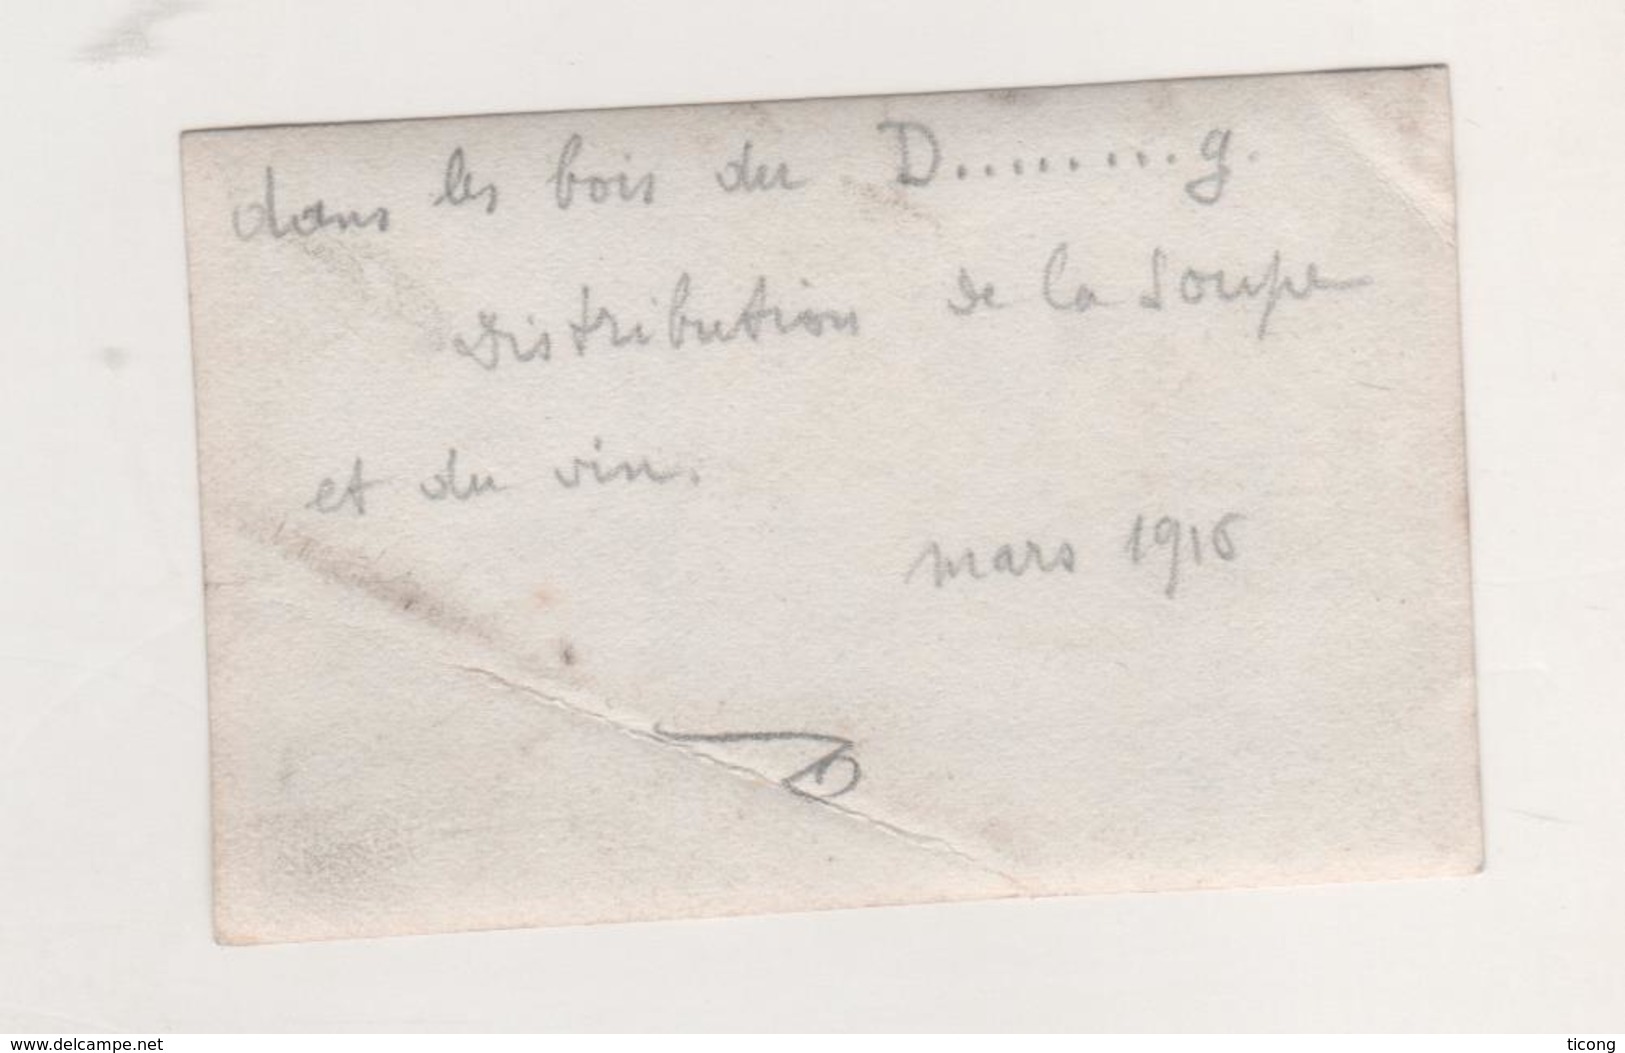 dans les bois du D.........g.
Distribution de la soupe
et du vin.
mars 1916
www.delcampe.net
ticong